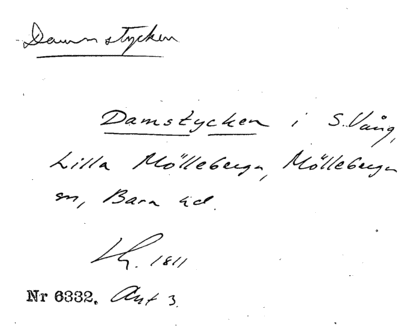 Dammstycken
Damstycken i S. Vång,
Lilla Mölleberga, Mölleberga
sn, Bara hd.
1811
Nr 6332. Akt 3.